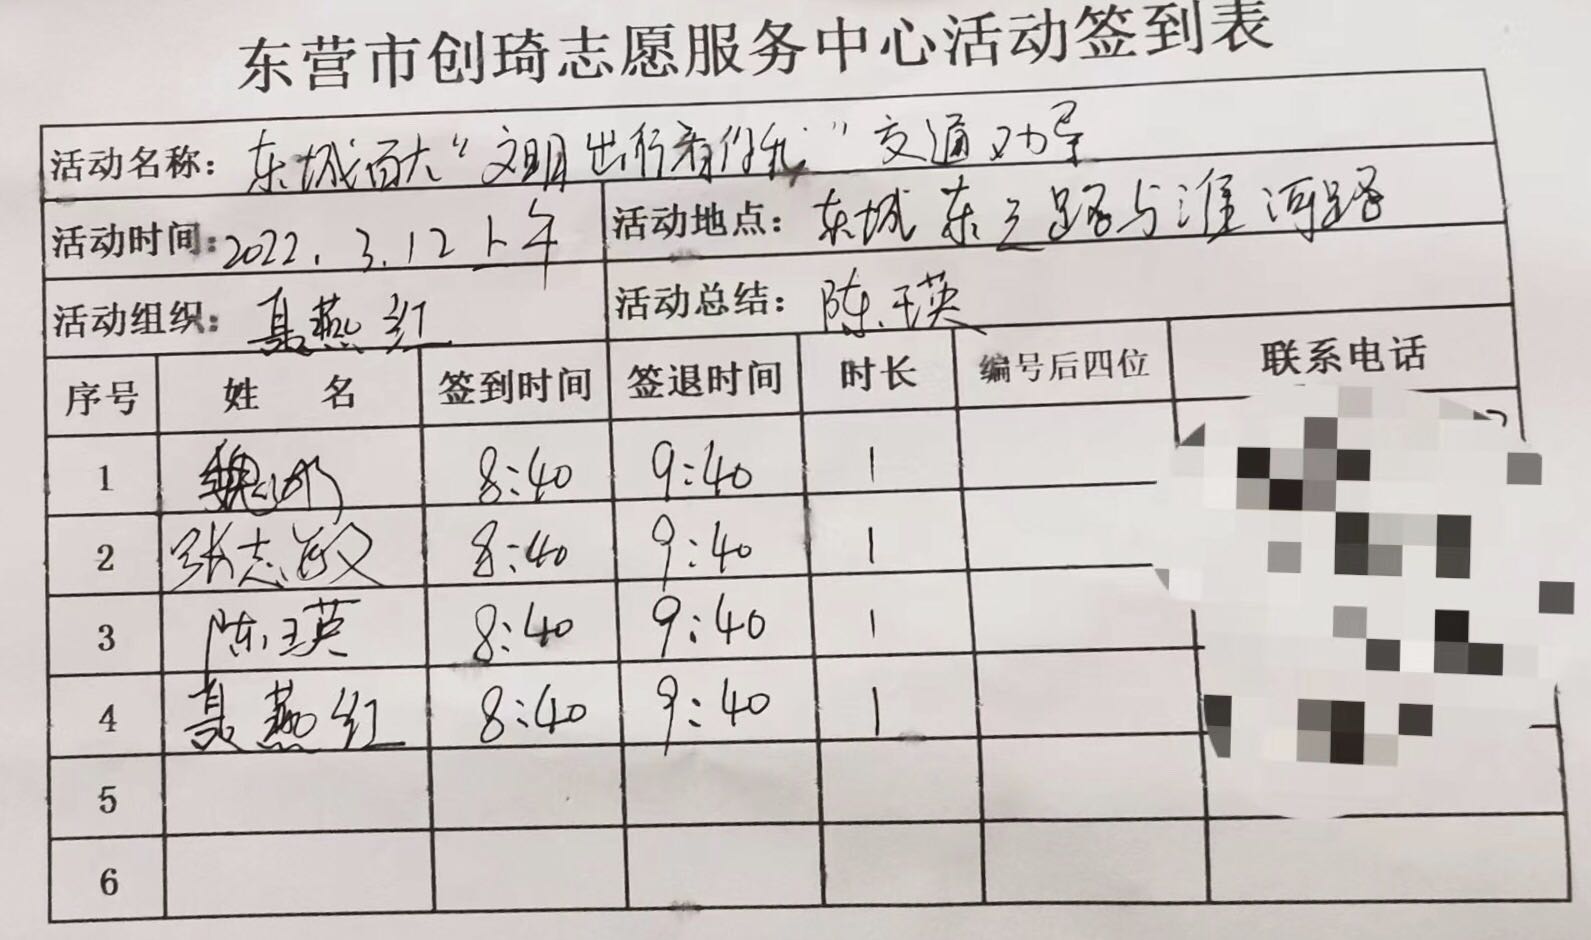 东营市创琦志愿服务中心活动签到表
活动名称：东城百大“文明出行有你我”交通劝导
活动时间：2022.3.12上午 活动地点：东城东三路与淮河路
活动组织：聂燕红 活动总结：陈玉英
序号 姓名 签到时间 签退时间 时长 编号后四位 联系电话
1 魏 8:40 9:40 1
2 张志敏 8:40 9:40 1
3 陈玉英 8:40 9:40 1
4 聂燕红 8:40 9:40 1
5
6